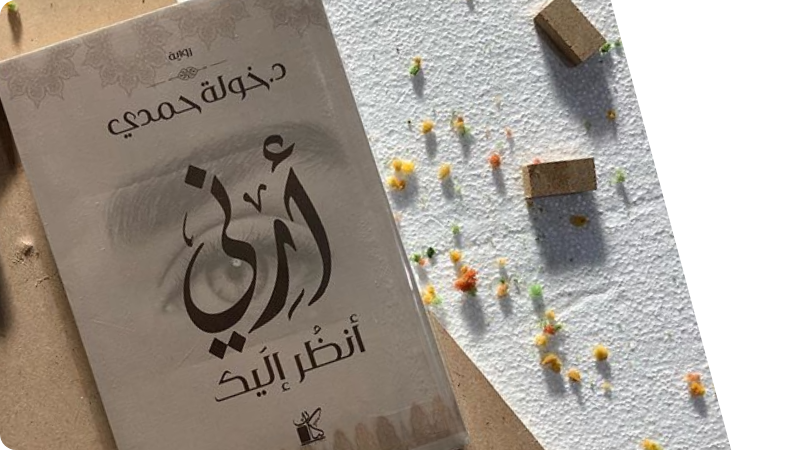 رواية
د.خولة حمدي
أرِني
أنظُر إلَيك